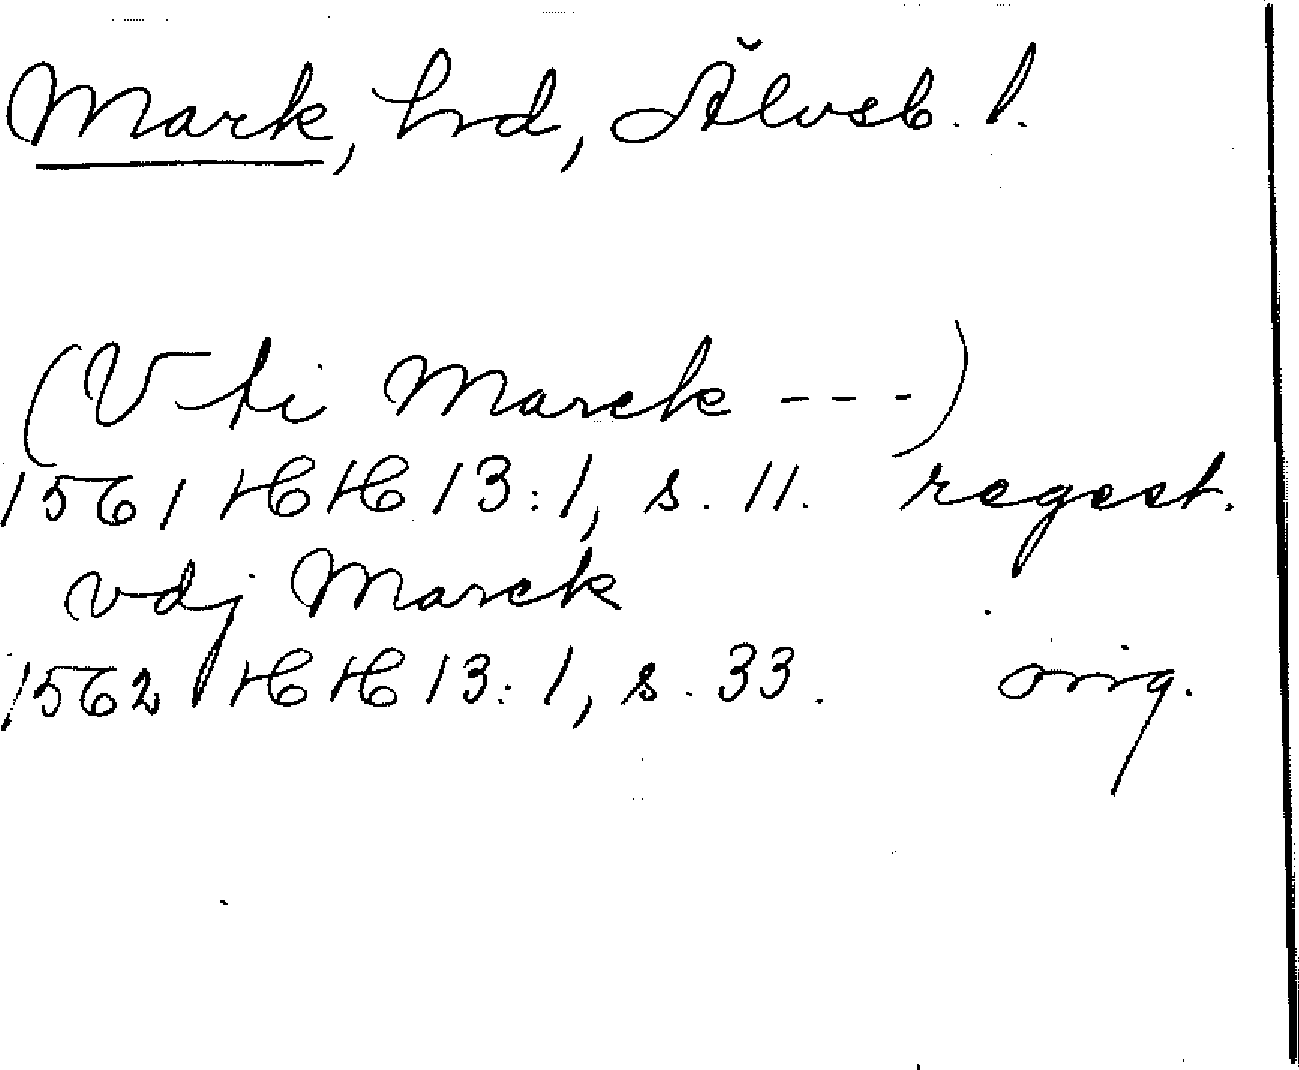 Mark, hrd, Älvsb. l.
(V ti Marck ---)
1561 HH 13:1, s. 11. regest.
vdj Marck
1562 HH 13:1, s. 33. orig.